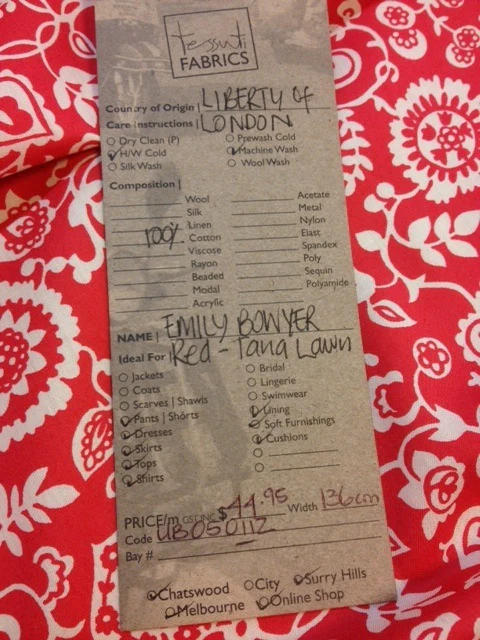 tessuti
FABRICS
Country of Origin | LIBERTY Of
Care Instructions | LONDON
Dry Clean (P) Prewash Cold
H/W Cold Machine Wash
Silk Wash Wool Wash
Composition |
Wool Acetate
Silk Metal
Linen Nylon
100% Cotton Elast
Viscose Spandex
Rayon Poly
Beaded Sequin
Modal Polyamide
Acrylic
NAME | EMILY BOWYER
Ideal For | Red - Tana Lawn
Jackets Bridal
Coats Lingerie
Scarves | Shawls Swimwear
Pants | Shorts Lining
Dresses Soft Furnishings
Skirts Cushions
Tops
Shirts
PRICE/m GST INC $44.95 Width 136cm
Code UB050112
Bay #
Chatswood City Surry Hills
Melbourne Online Shop